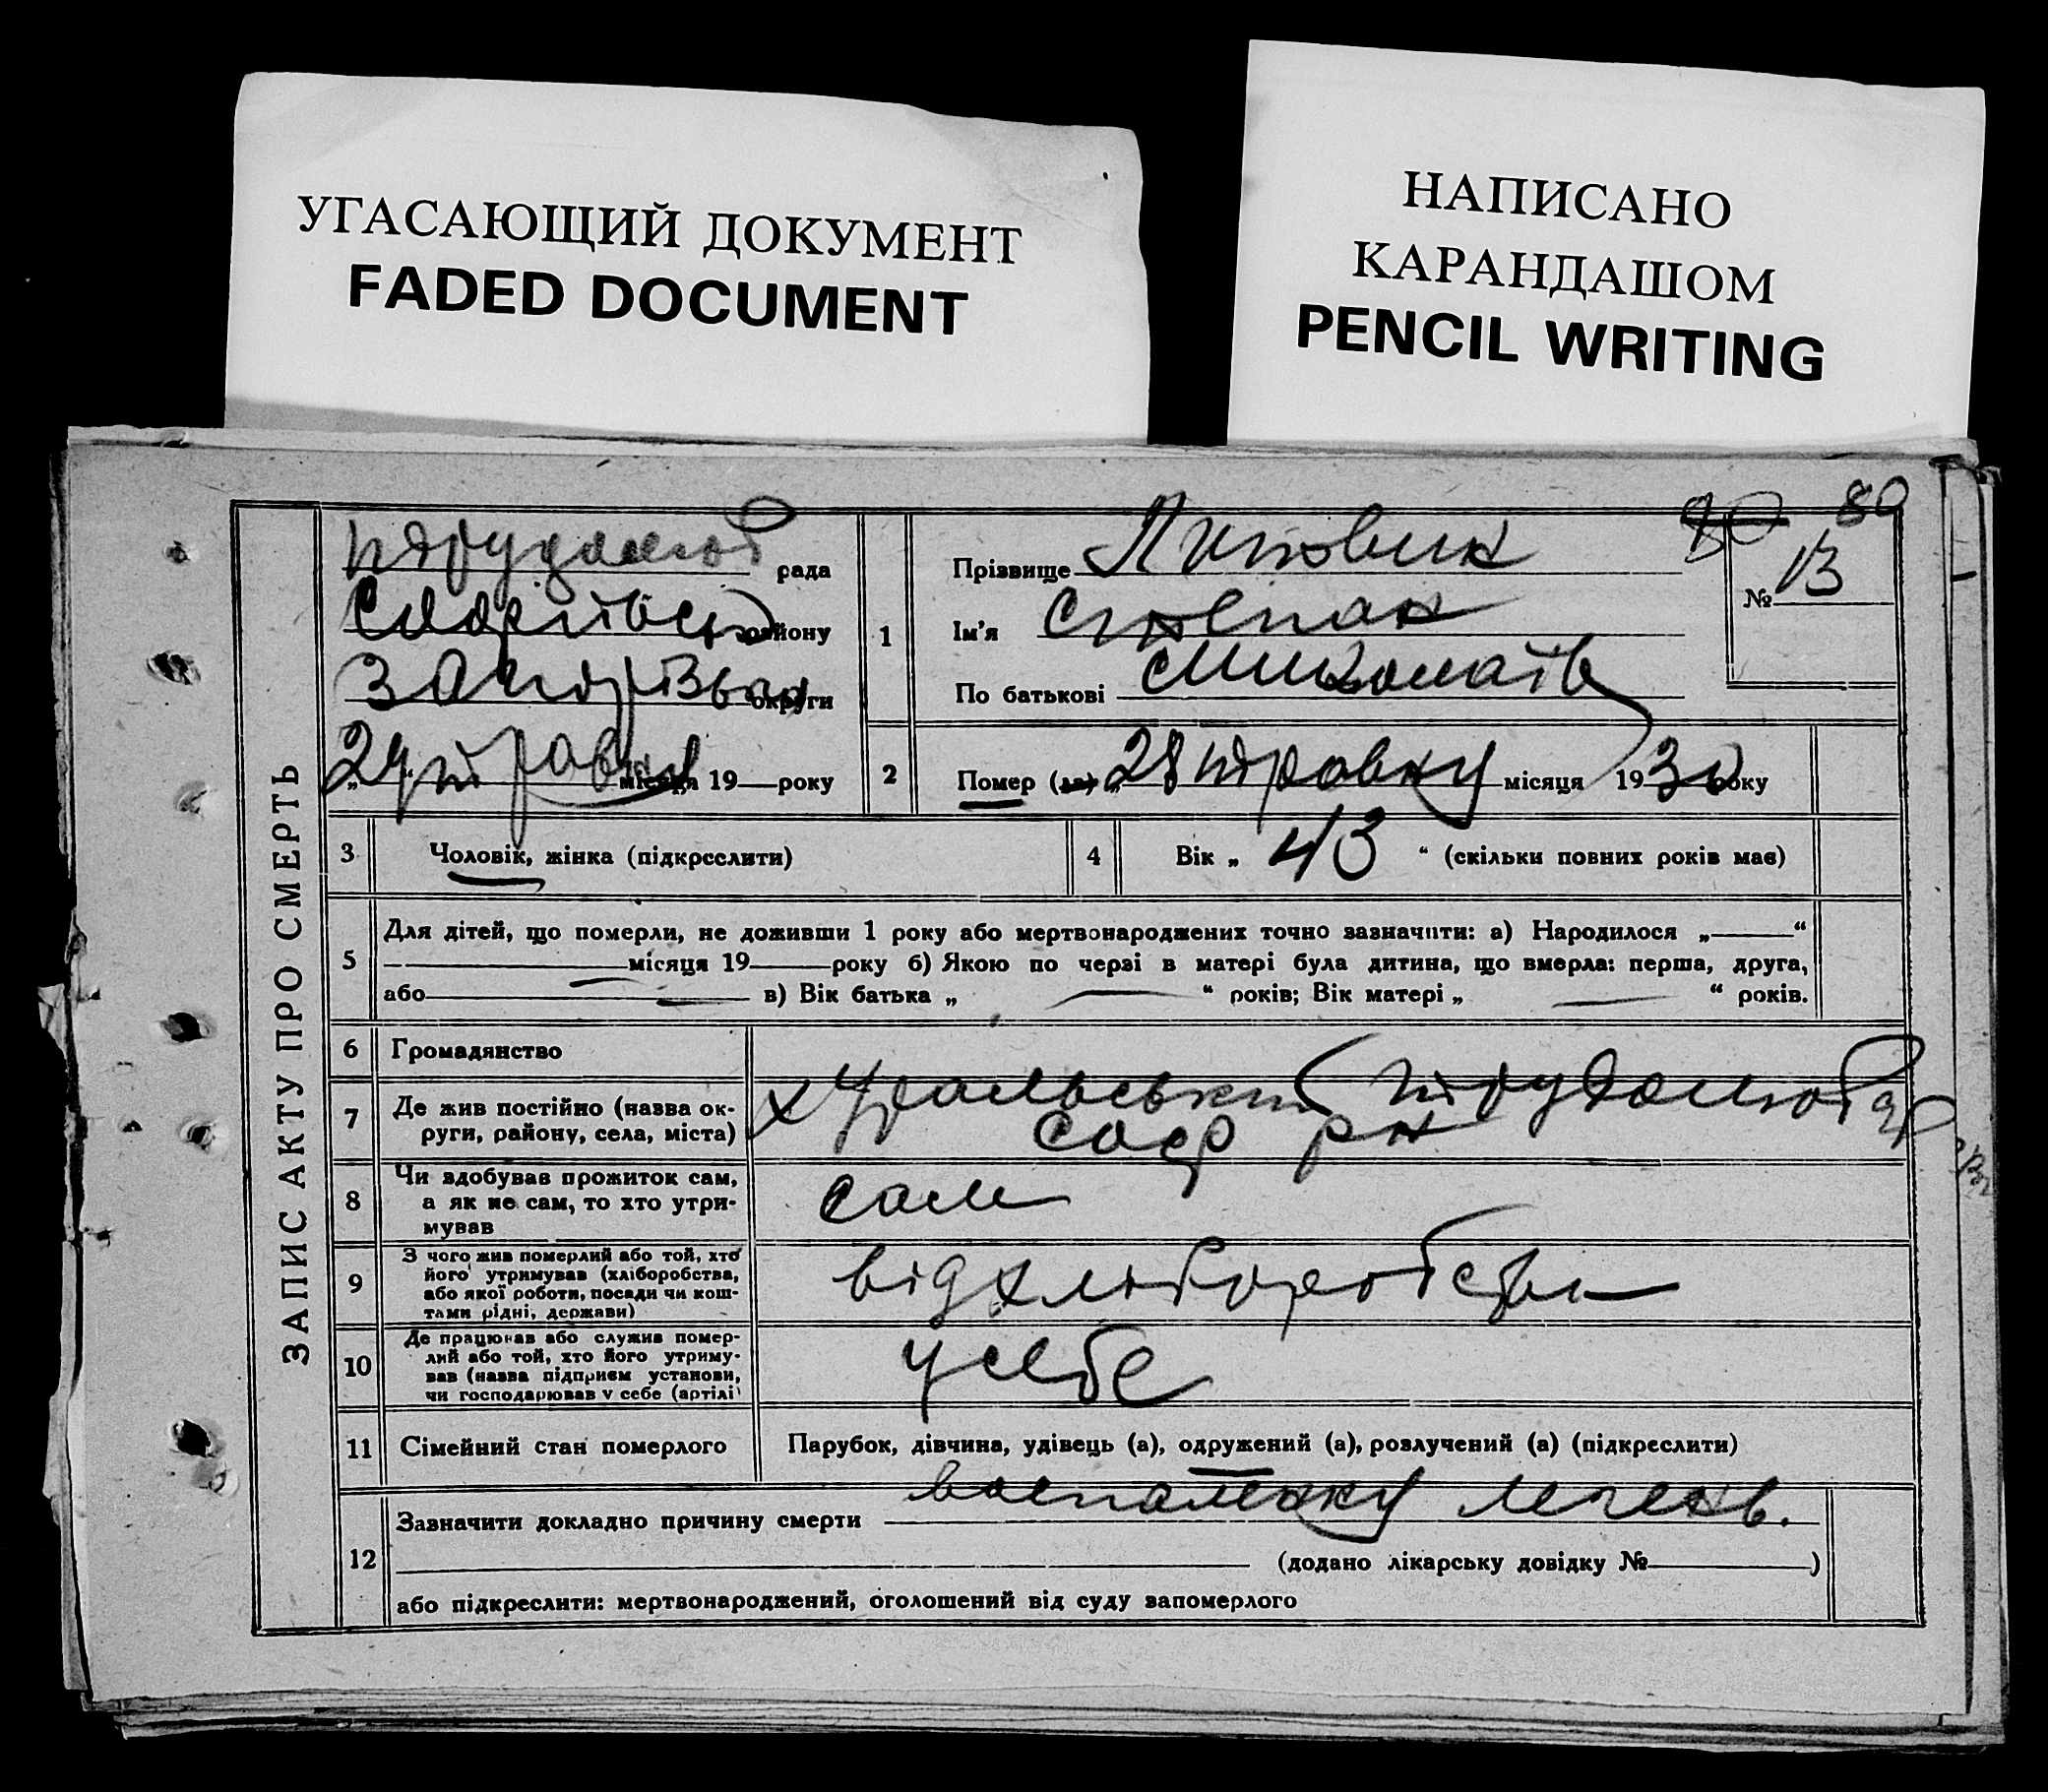 УГАСАЮЩИЙ ДОКУМЕНТ
FADED DOCUMENT
НАПИСАНО
КАРАНДАШОМ
PENCIL WRITING
80
ЗАПИС АКТУ ПРО СМЕРТЬ
рада
району
округи
29 травку місяця 19 року
№ 13
1
Прізвище Литовник
Ім'я Степан
По батькові Миколаїв
2
Помер (ла) „28 травку місяця 1930 року
3
Чоловік, жінка (підкреслити)
4
Вік „ 43 “ (скільки повних років має)
5
Для дітей, що померли, не доживши 1 року або мертвонароджених точно зазначити: а) Народилося „ “
місяця 19 року б) Якою по черзі в матері була дитина, що вмерла: перша, друга,
або в) Вік батька „ “ років; Вік матері „ “ років.
6
Громадянство
7
Де жив постійно (назва ок-
руги, району, села, міста)
х Уральський Трудолюб
Соф рн
8
Чи здобував прожиток сам,
а як не сам, то хто утри-
мував
сам
9
З чого жив померлий або той, хто
його утримував (хліборобства,
або якої роботи, посади чи кош-
тами рідні, держави)
від хліборобства
10
Де працював або служив помер-
лий або той, хто його утриму-
вав (назва підприєм установи,
чи господарював у себе (артілі)
у себе
11
Сімейний стан померлого
Парубок, дівчина, удівець (а), одружений (а), розлучений (а) (підкреслити)
12
Зазначити докладно причину смерти воспаленку легень.
(додано лікарську довідку № )
або підкреслити: мертвонароджений, оголошений від суду запомерлого